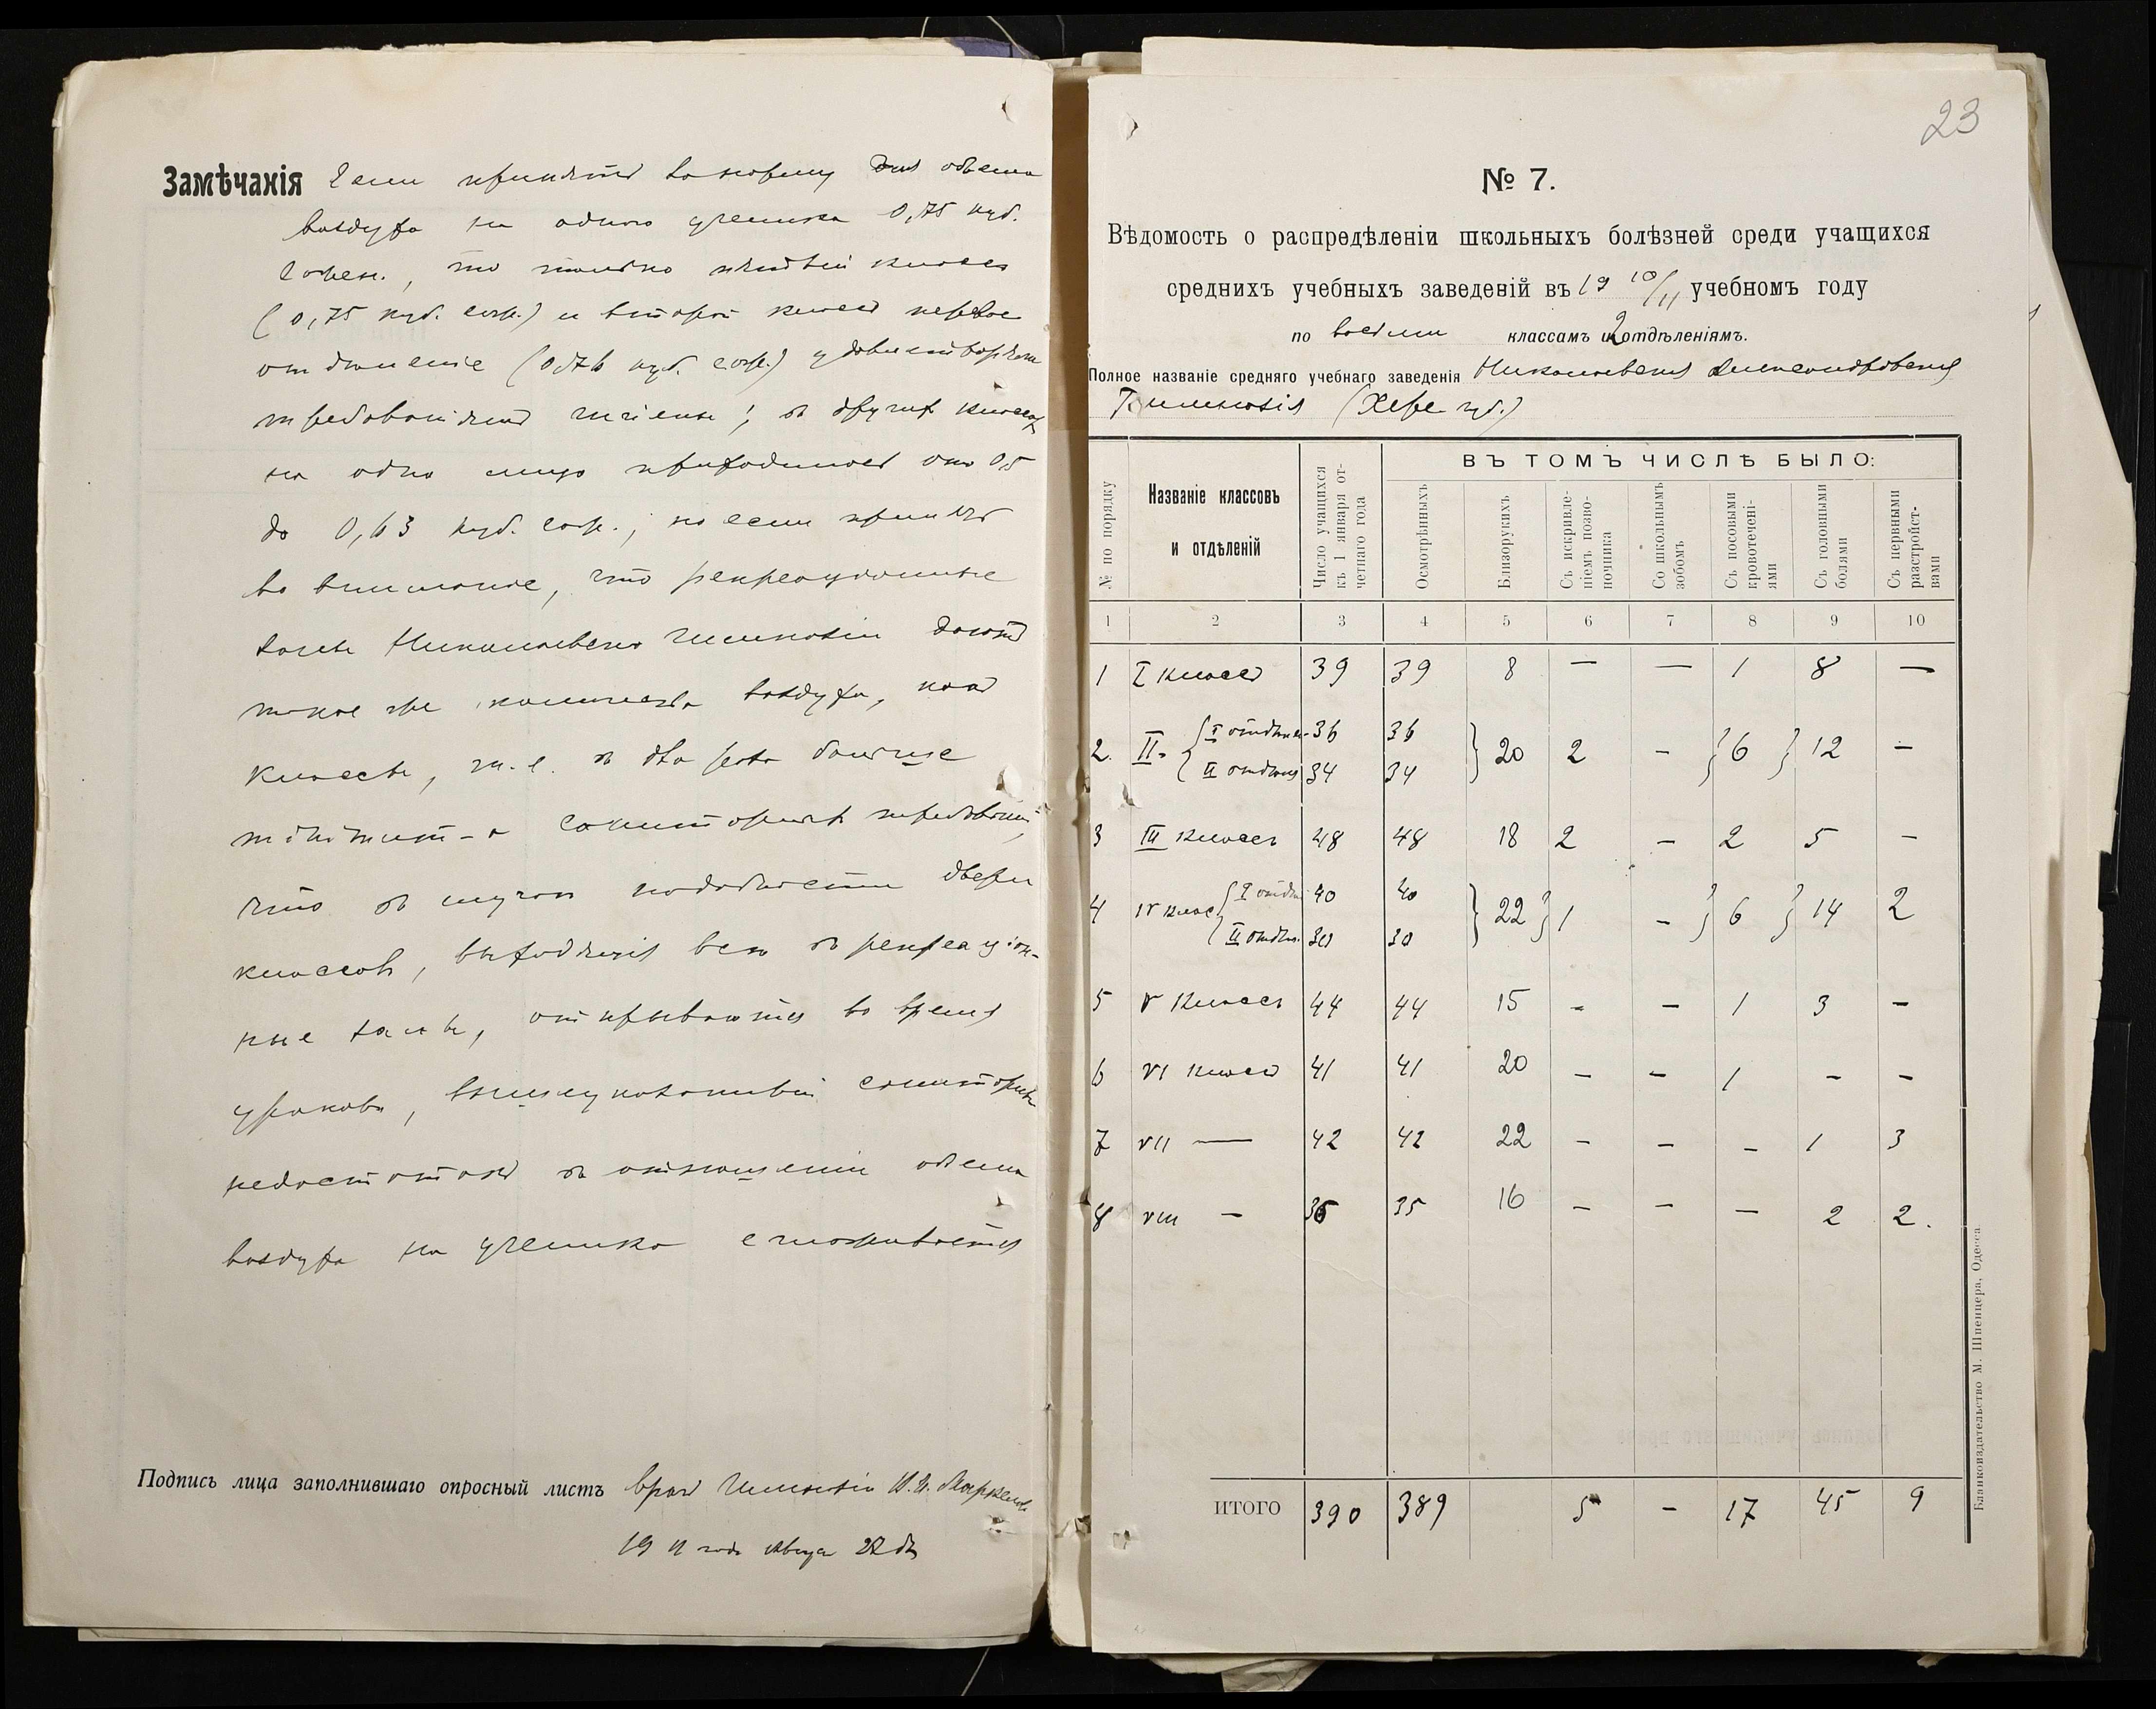 Замѣчанія Если принять за норму для объема
воздуха на одного ученика 0,75 куб.
сажен., то только пятый классъ
(0,75 куб. саж.) и второй классъ первое
отдѣленіе (0,76 куб. саж.) удовлетворяютъ
требованіямъ гигіены; въ другихъ классахъ
на одно лицо приходится отъ 0,5
до 0,63 куб. саж.; но если принять
во вниманіе, что рекреаціонные
залы Николаевской гимназіи даютъ
такое же количество воздуха, какъ
классы, т. е. въ два раза больше
санитарныхъ требованій,
что въ случаѣ надобности двери
классовъ, выходящія всѣ въ рекреаціон-
ные залы, открываются во время
уроковъ, вышеуказанный санитарный
недостатокъ въ отношеніи объема
воздуха на ученика сглаживается
Подпись лица заполнившаго опросный листъ врачъ Гимназіи
1911 года 27 дн
23
№ 7.
Вѣдомость о распредѣленіи школьныхъ болѣзней среди учащихся
среднихъ учебныхъ заведеній въ 19 10/11 учебномъ году
по восьми классамъ и 2 отдѣленіямъ.
Полное названіе средняго учебнаго заведенія Николаевская Александровская
Гимназія (Херс. губ.)
№ по порядку
Названіе классовъ и отдѣленій
Число учащихся къ 1 января отчетнаго года
ВЪ ТОМЪ ЧИСЛѢ БЫЛО:
Осмотрѣнныхъ
Близорукихъ
Съ искривле-ніемъ позво-ночника
Со школьнымъ зобомъ
Съ носовыми кровотечені-ями
Съ головными болями
Съ нервными разстройст-вами
1 2 3 4 5 6 7 8 9 10
1 I классъ 39 39 8 — — 1 8 —
2. II " { I отдѣлен. 36 36 } 20 2 - } 6 } 12 -
II отдѣлен 34 34
3 III классъ 48 48 18 2 - 2 5 -
4 IV класс { I отдѣл 40 40 } 22 } 1 - } 6 } 14 2
II отдѣл. 30 30
5 V классъ 44 44 15 - - 1 3 -
6 VI классъ 41 41 20 - - 1 - -
7 VII — 42 42 22 - - - 1 3
8 VIII — 36 35 16 - - - 2 2.
ИТОГО 390 389 5 - 17 45 9
Бланкоиздательство М. Шпенцера, Одесса